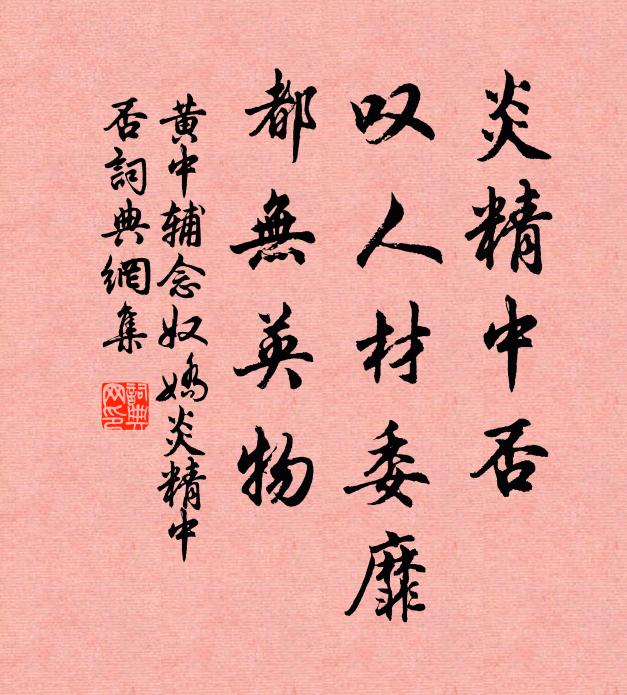 炎精中否
叹人材委靡
都無英物
黄中辅念奴嬌炎精中
否詞典網集
詞典
网印